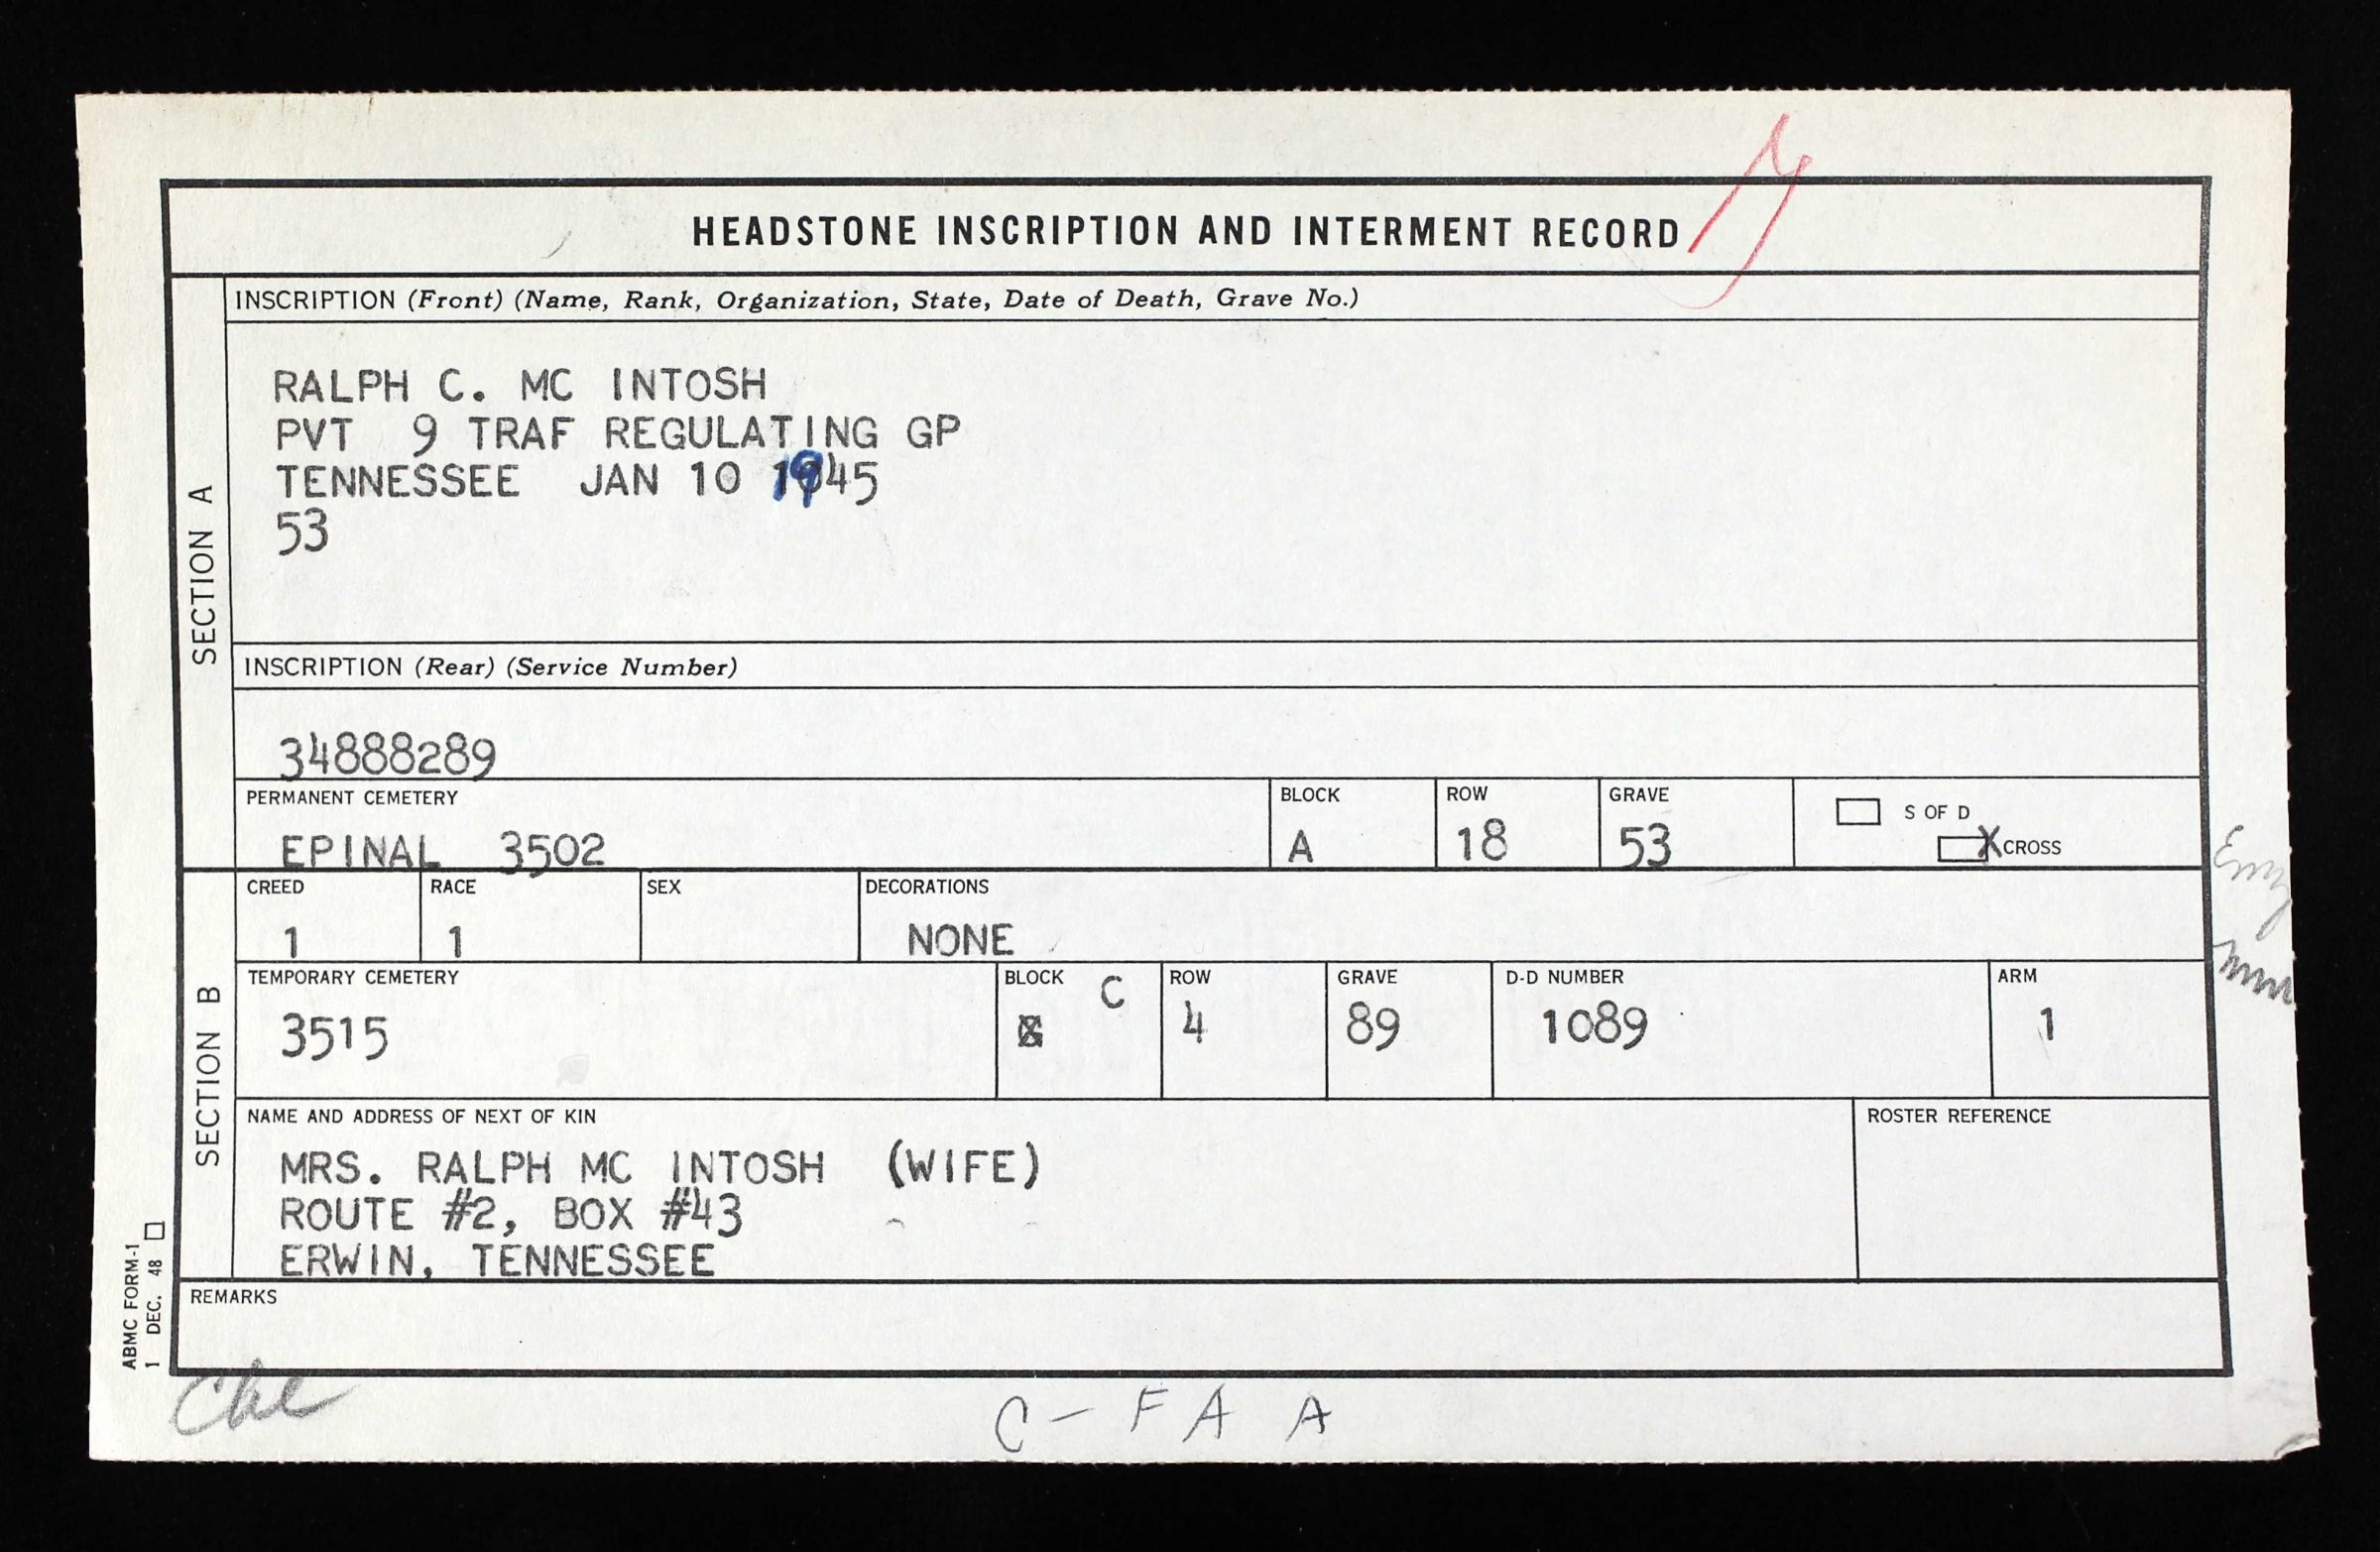 HEADSTONE INSCRIPTION AND INTERMENT RECORD
SECTION A
INSCRIPTION (Front) (Name, Rank, Organization, State, Date of Death, Grave No.)
RALPH C. MC INTOSH
PVT 9 TRAF REGULATING GP
TENNESSEE JAN 10 1945
53
INSCRIPTION (Rear) (Service Number)
34888289
PERMANENT CEMETERY BLOCK ROW GRAVE S OF D
EPINAL 3502 A 18 53 X CROSS
SECTION B
CREED RACE SEX DECORATIONS
1 1 NONE
TEMPORARY CEMETERY BLOCK C ROW GRAVE D-D NUMBER ARM
3515 4 89 1089 1
NAME AND ADDRESS OF NEXT OF KIN ROSTER REFERENCE
MRS. RALPH MC INTOSH (WIFE)
ROUTE #2, BOX #43
ERWIN, TENNESSEE
REMARKS
ABMC FORM-1
1 DEC. 48
C - F A A